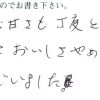 のでお書き下さい。
甘さも丁度と
おいしさやめ
いました